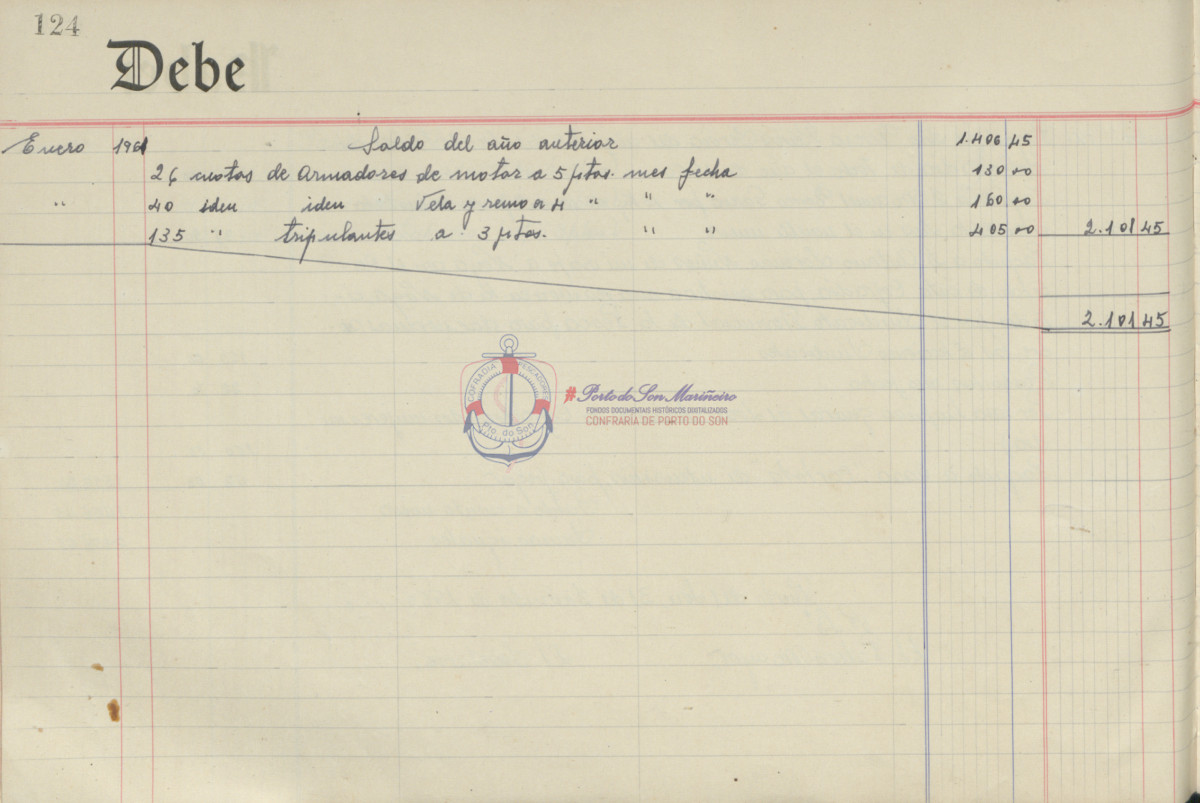 124
Debe
Enero 1961 Saldo del año anterior 1.406 45
26 cuotas de Armadores de motor a 5 ptas. mes fecha 130 00
" 40 idem idem Vela y remo a 4 " " " 160 00
135 " tripulantes a 3 ptas. " " 405 00 2.101 45
2.101 45
COFRADIA PESCADORES
Pto. do Son
#Porto do Son Mariñeiro
FONDOS DOCUMENTAIS HISTÓRICOS DIXITALIZADOS
CONFRARÍA DE PORTO DO SON